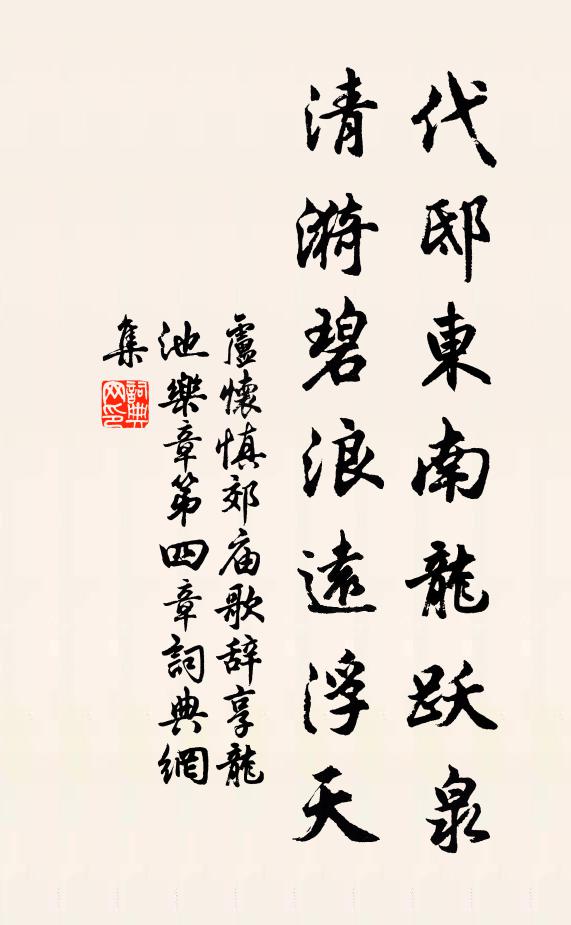 代邸東南龍躍泉
清漪碧浪遠浮天
盧懷慎郊庙歌辞享龍
池樂章第四章詞典網
集
詞典网印